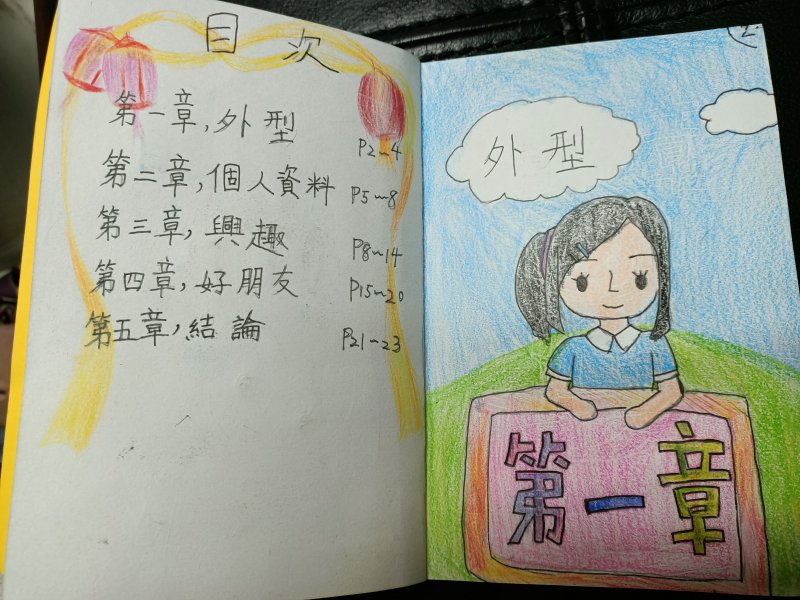 目次
第一章，外型 P2~4
第二章，個人資料 P5~8
第三章，興趣 P8~14
第四章，好朋友 P15~20
第五章，結論 P21~23
2
外型
第一章